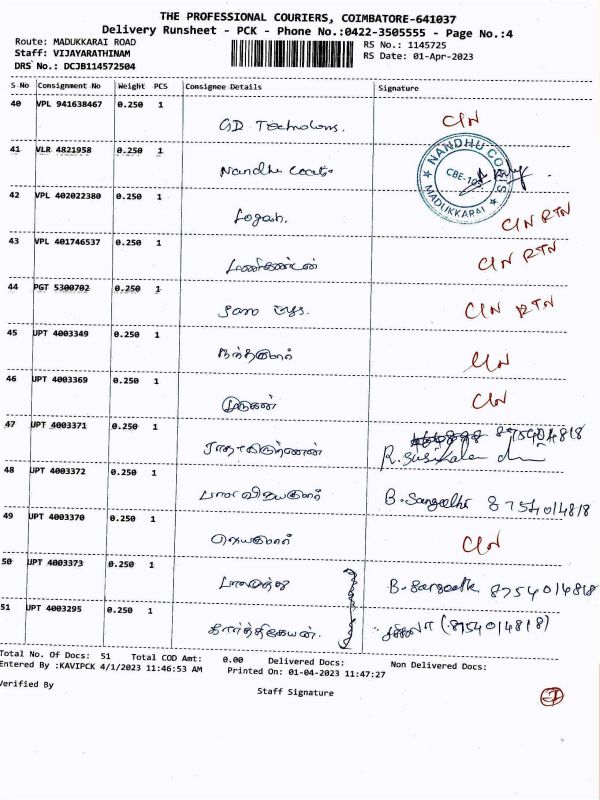 THE PROFESSIONAL COURIERS, COIMBATORE-641037
Delivery Runsheet - PCK - Phone No.:0422-3505555 - Page No.:4
Route: MADUKKARAI ROAD RS No.: 1145725
Staff: VIJAYARATHINAM RS Date: 01-Apr-2023
DRS No.: DCJB114572504
S No Consignment No Weight PCS Consignee Details Signature
40 VPL 941638467 0.250 1 CIN
GD
41 VLR 4821958 0.250 1
Nandhu NANDHU CBE-105 MADUKKARAI
42 VPL 402022380 0.250 1
Logan. CIN RTN
43 VPL 401746537 0.250 1 CIN RTN
மணிகண்டன்
44 PGT 5300702 0.250 1 CIN RTN
45 UPT 4003349 0.250 1
நந்தகுமார் CIN
46 UPT 4003369 0.250 1 CIN
முருகன்
47 UPT 4003371 0.250 1 8754014818
ராதாகிருஷ்ணன் R. Susikala
48 UPT 4003372 0.250 1
பாலவிஜயகுமார் B. Sangeetha 8754014818
49 UPT 4003370 0.250 1
ஜெயகுமார் CIN
50 UPT 4003373 0.250 1
B. Sangeetha 8754014818
51 UPT 4003295 0.250 1
கார்த்திகேயன். (8754014818)
Total No. Of Docs: 51 Total COD Amt: 0.00 Delivered Docs: Non Delivered Docs:
Entered By :KAVIPCK 4/1/2023 11:46:53 AM Printed On: 01-04-2023 11:47:27
Verified By Staff Signature